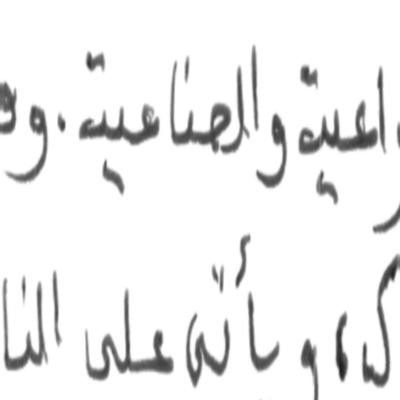 راعية والصناعية . وفـ
كد، ويأتى على النا